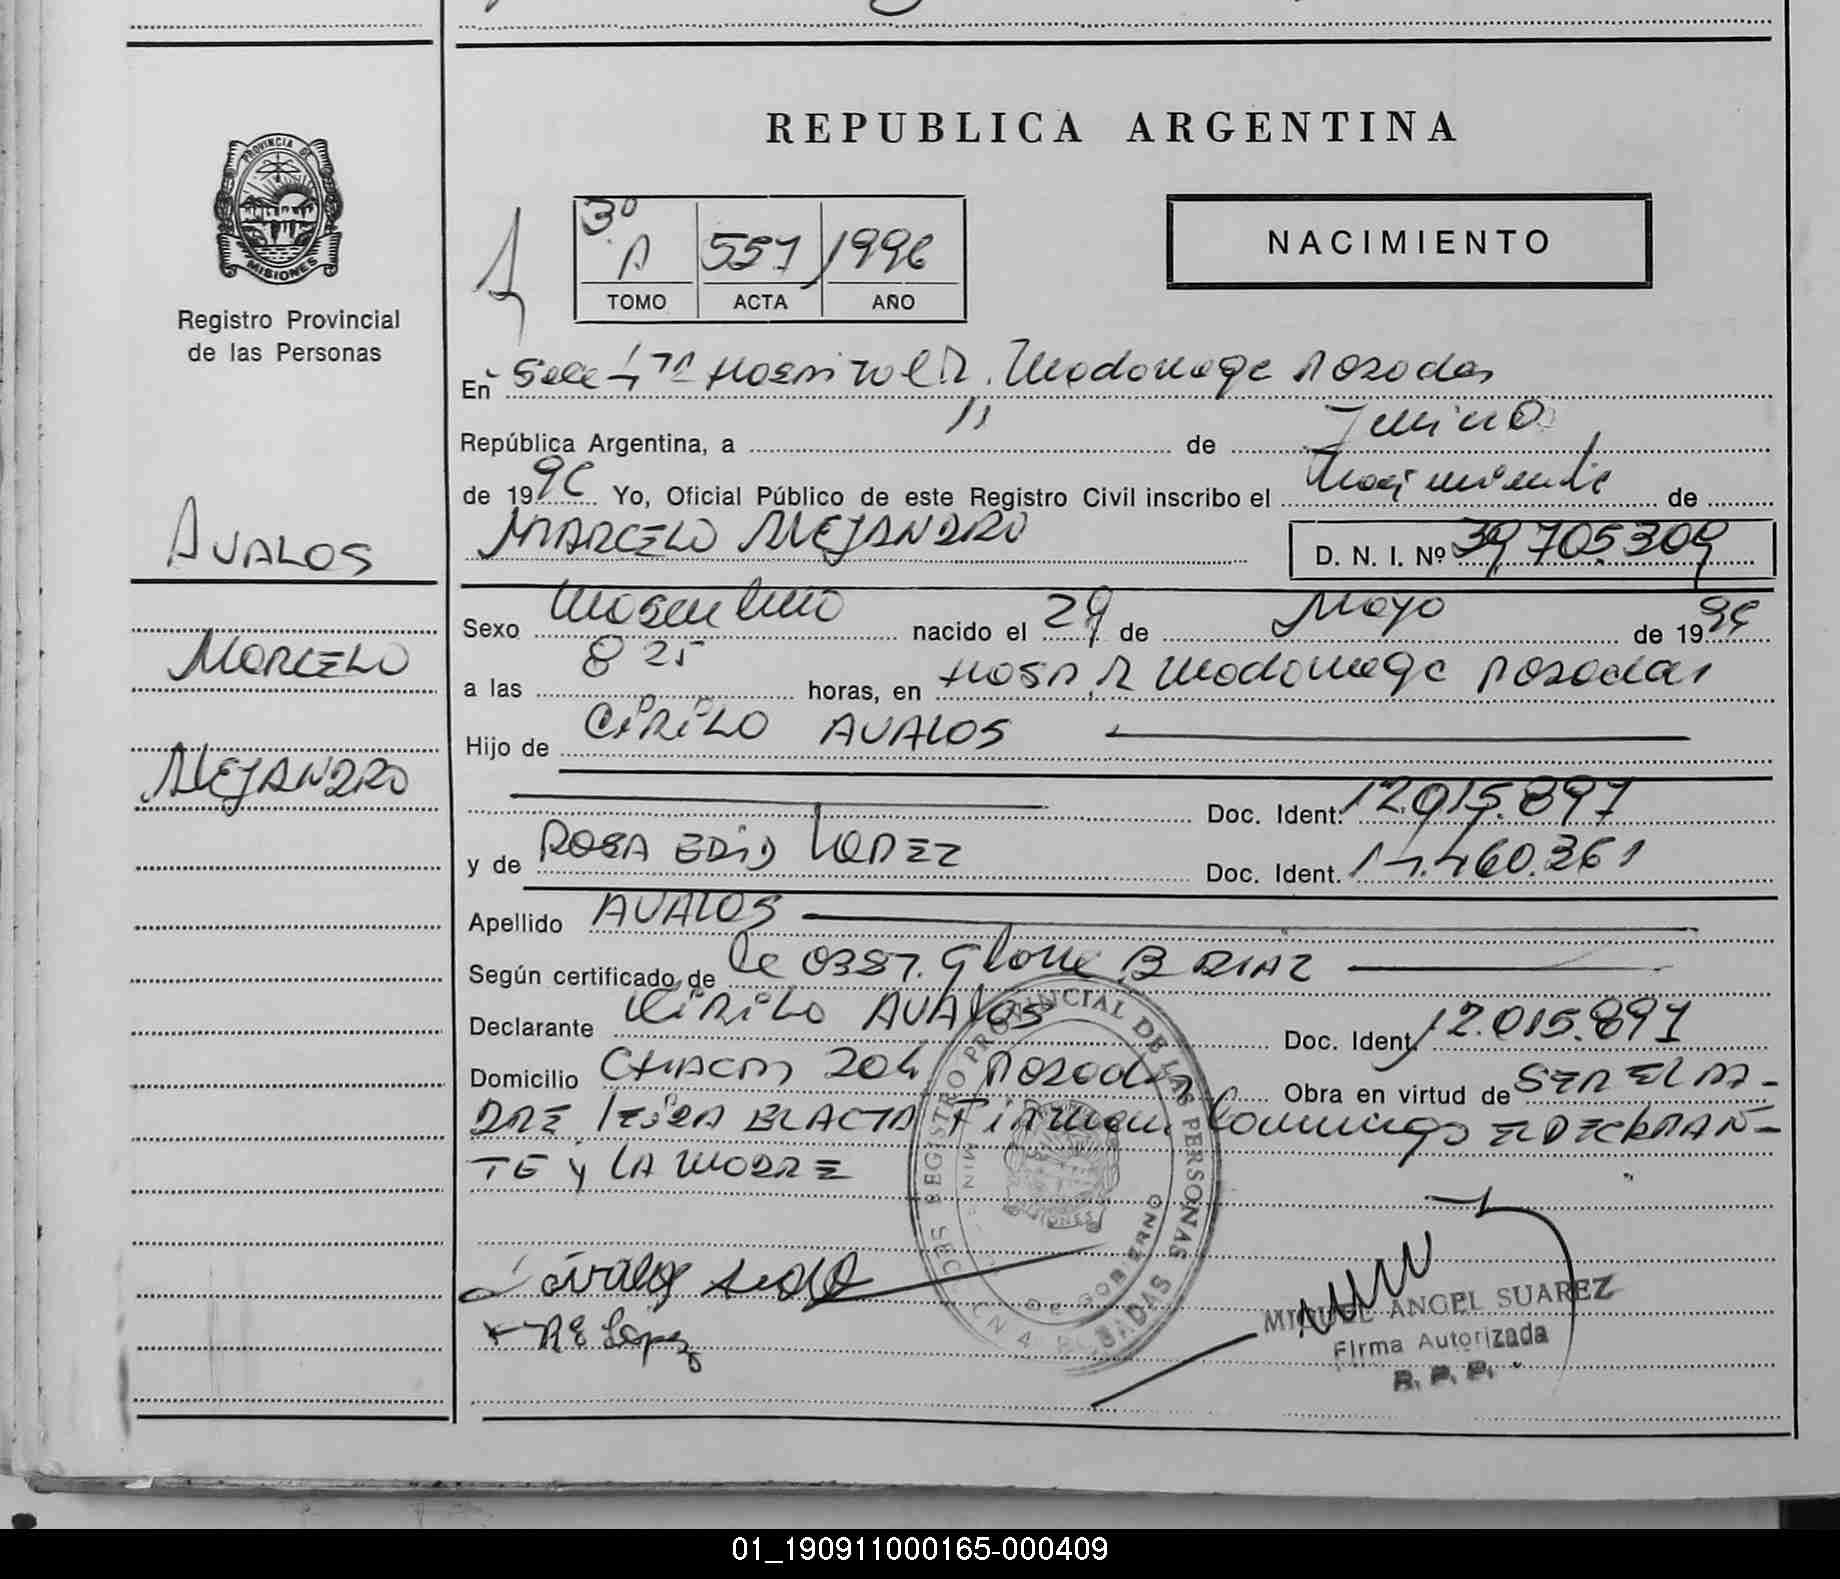 REPUBLICA ARGENTINA
PROVINCIA DE
MISIONES
Registro Provincial
de las Personas
3º
A 557 1996
TOMO ACTA AÑO
NACIMIENTO
En Secc 4ta Hospital R. Madariaga Posadas
República Argentina, a 11 de Junio
de 1996 Yo, Oficial Público de este Registro Civil inscribo el Nacimiento de
AVALOS
MARCELO ALEJANDRO D. N. I. Nº 39705309
Sexo Masculino nacido el 29 de Mayo de 1996
MARCELO
a las 8 25 horas, en Hosp. R Madariaga Posadas
Hijo de CIRILO AVALOS
ALEJANDRO
Doc. Ident. 12.015.897
y de ROSA EDID LOPEZ Doc. Ident. 14.460.361
Apellido AVALOS
Según certificado de la OBST. Gloria B DIAZ
Declarante CIRILO AVALOS Doc. Ident. 12.015.897
Domicilio CHACRA 204 Posadas Obra en virtud de SER EL PA-
DRE. LEIDA EL ACTA Firman Conmigo EL DECLARAN-
TE Y LA MADRE
REGISTRO PROVINCIAL DE LAS PERSONAS
DE GOBIERNO
MISIONES
R E Lopez
MIGUEL ANGEL SUAREZ
Firma Autorizada
R. P. P.
01_190911000165-000409